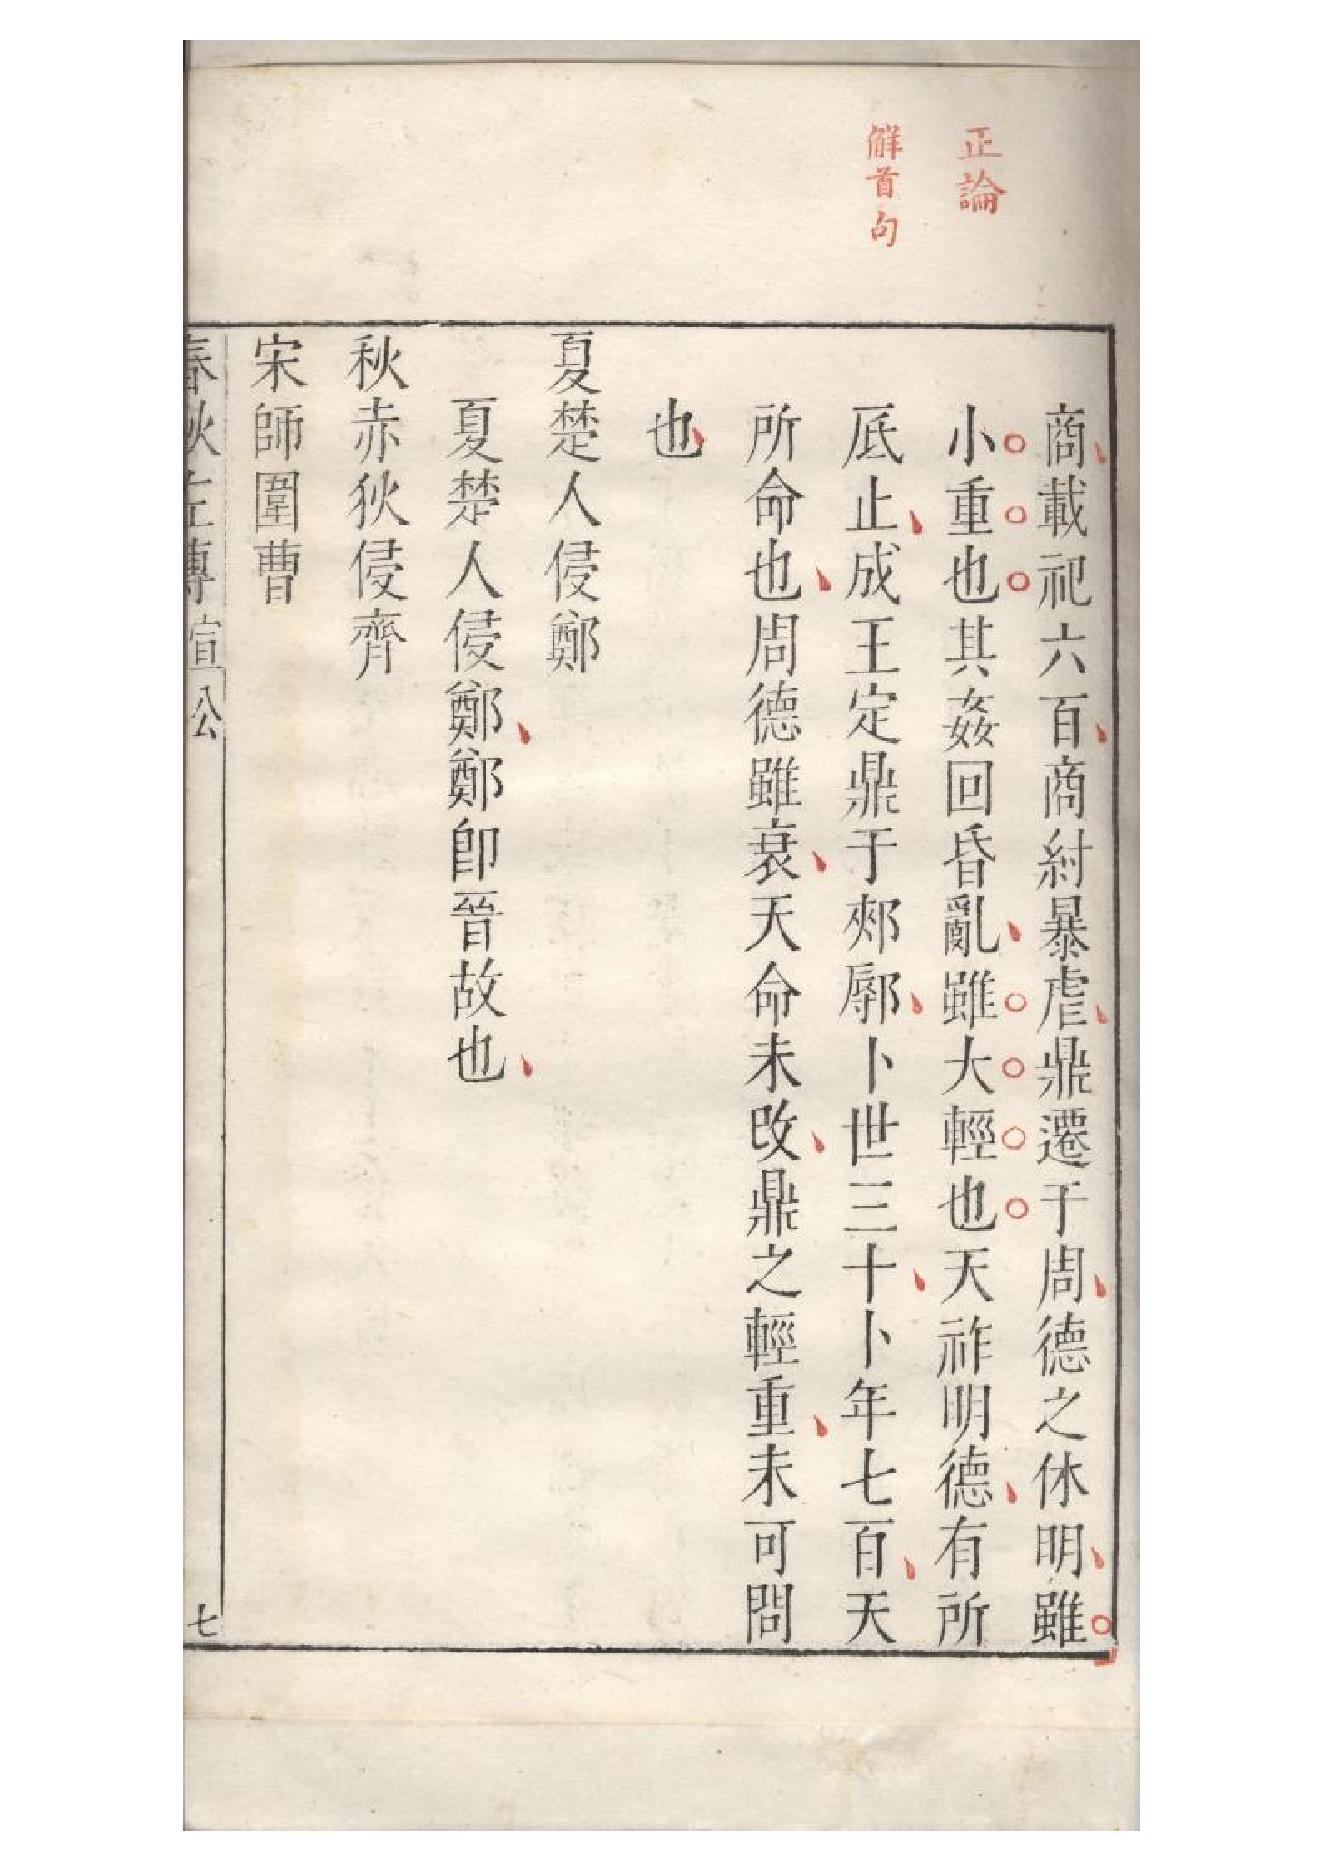 正論
解首句
商載祀六百商紂暴虐鼎遷于周德之休明雖
小重也其姦回昏亂雖大輕也天祚明德有所
厎止成王定鼎于郟鄏卜世三十卜年七百天
所命也周德雖衰天命未改鼎之輕重未可問
也
夏楚人侵鄭
夏楚人侵鄭鄭卽晉故也
秋赤狄侵齊
宋師圍曹
春秋左傳 宣公 七